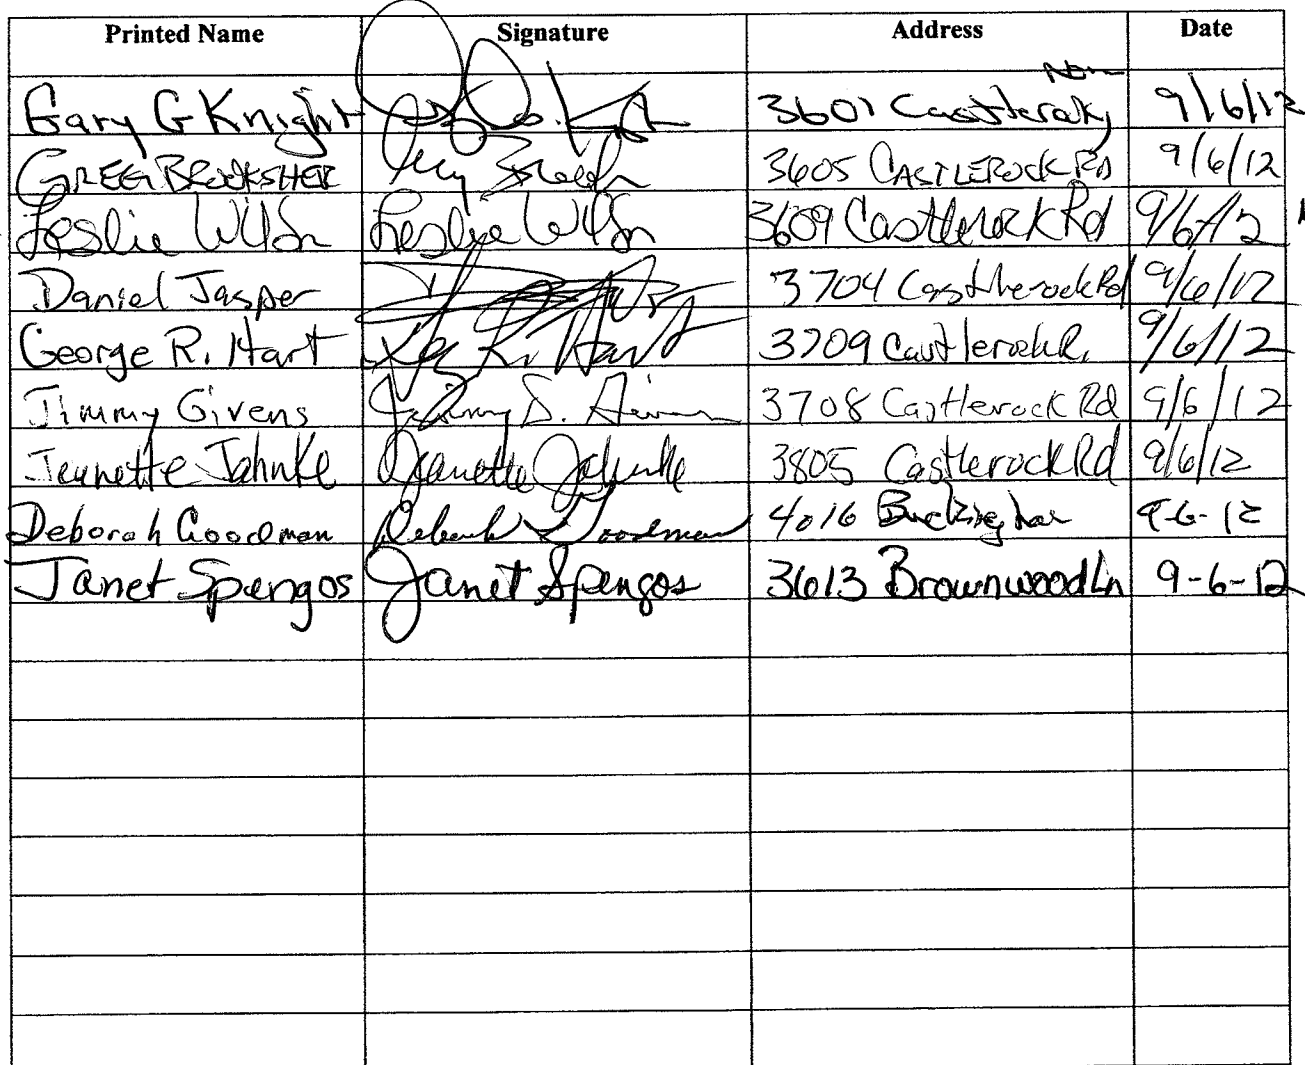 Printed Name Signature Address Date
Gary G Knight 3601 Castlerock 9/6/12
GREG BROOKSHER 3605 CASTLEROCK RD 9/6/12
Leslie Wilson Leslie Wilson 3609 Castlerock Rd 9/6/12
Daniel Jasper 3704 Castlerock Rd 9/6/12
George R. Hart R. Hart 3709 Castlerock R. 9/6/12
Jimmy Givens Jimmy D. Givens 3708 Castlerock Rd 9/6/12
Jeanette Jahnke Jeanette Jahnke 3805 Castlerock Rd 9/6/12
Deborah Goodman Deborah Goodman 4016 Buckingham 9-6-12
Janet Spengos Janet Spengos 3613 Brownwood Ln 9-6-12